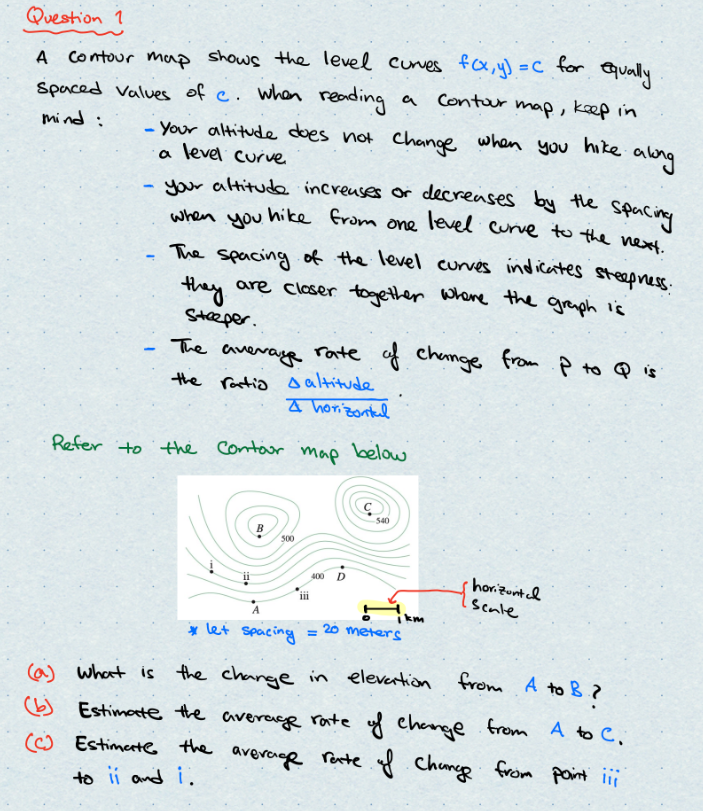 Question 1
A contour map shows the level curves f(x,y) = c for equally
spaced values of c. When reading a contour map, keep in
mind :
- Your altitude does not change when you hike along
a level curve
- your altitude increases or decreases by the spacing
when you hike from one level curve to the next.
- The spacing of the level curves indicates steepness:
they are closer together where the graph is
steeper.
- The average rate of change from P to Q is
the ratio Δ altitude
Δ horizontal .
Refer to the contour map below
C
540
B
500
i
ii
400 D
iii
A
horizontal
scale
0 1 km
* let spacing = 20 meters
(a) What is the change in elevation from A to B ?
(b) Estimate the average rate of change from A to C.
(c) Estimate the average rate of change from point iii
to ii and i.